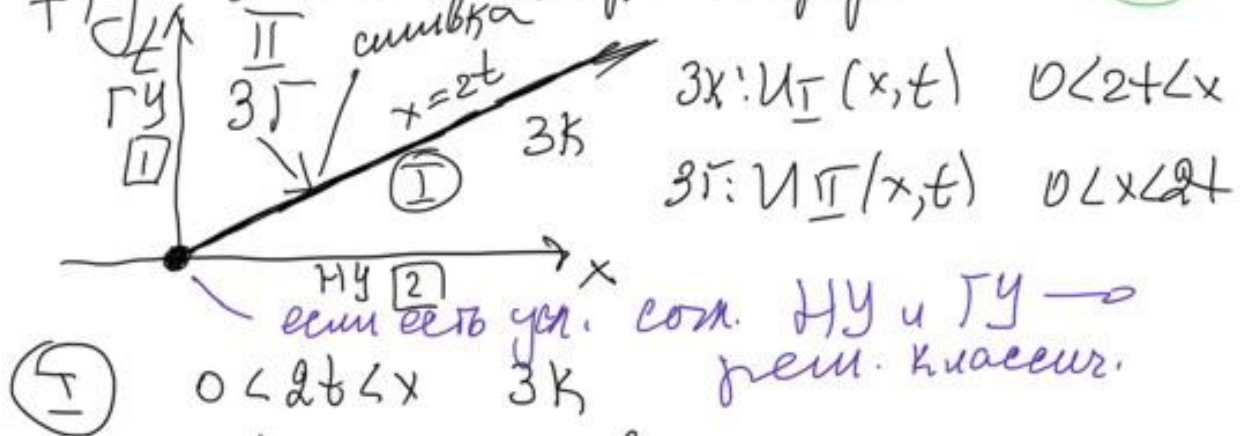 t
II
сшивка
ГУ
ЗГ
x=2t
ЗК
1
I
ЗК: u_I (x,t) 0<2t<x
ЗГ: u_II (x,t) 0<x<2t
НУ 2 x
если есть усл. согл. НУ и ГУ →
реш. классич.
I 0<2t<x ЗК